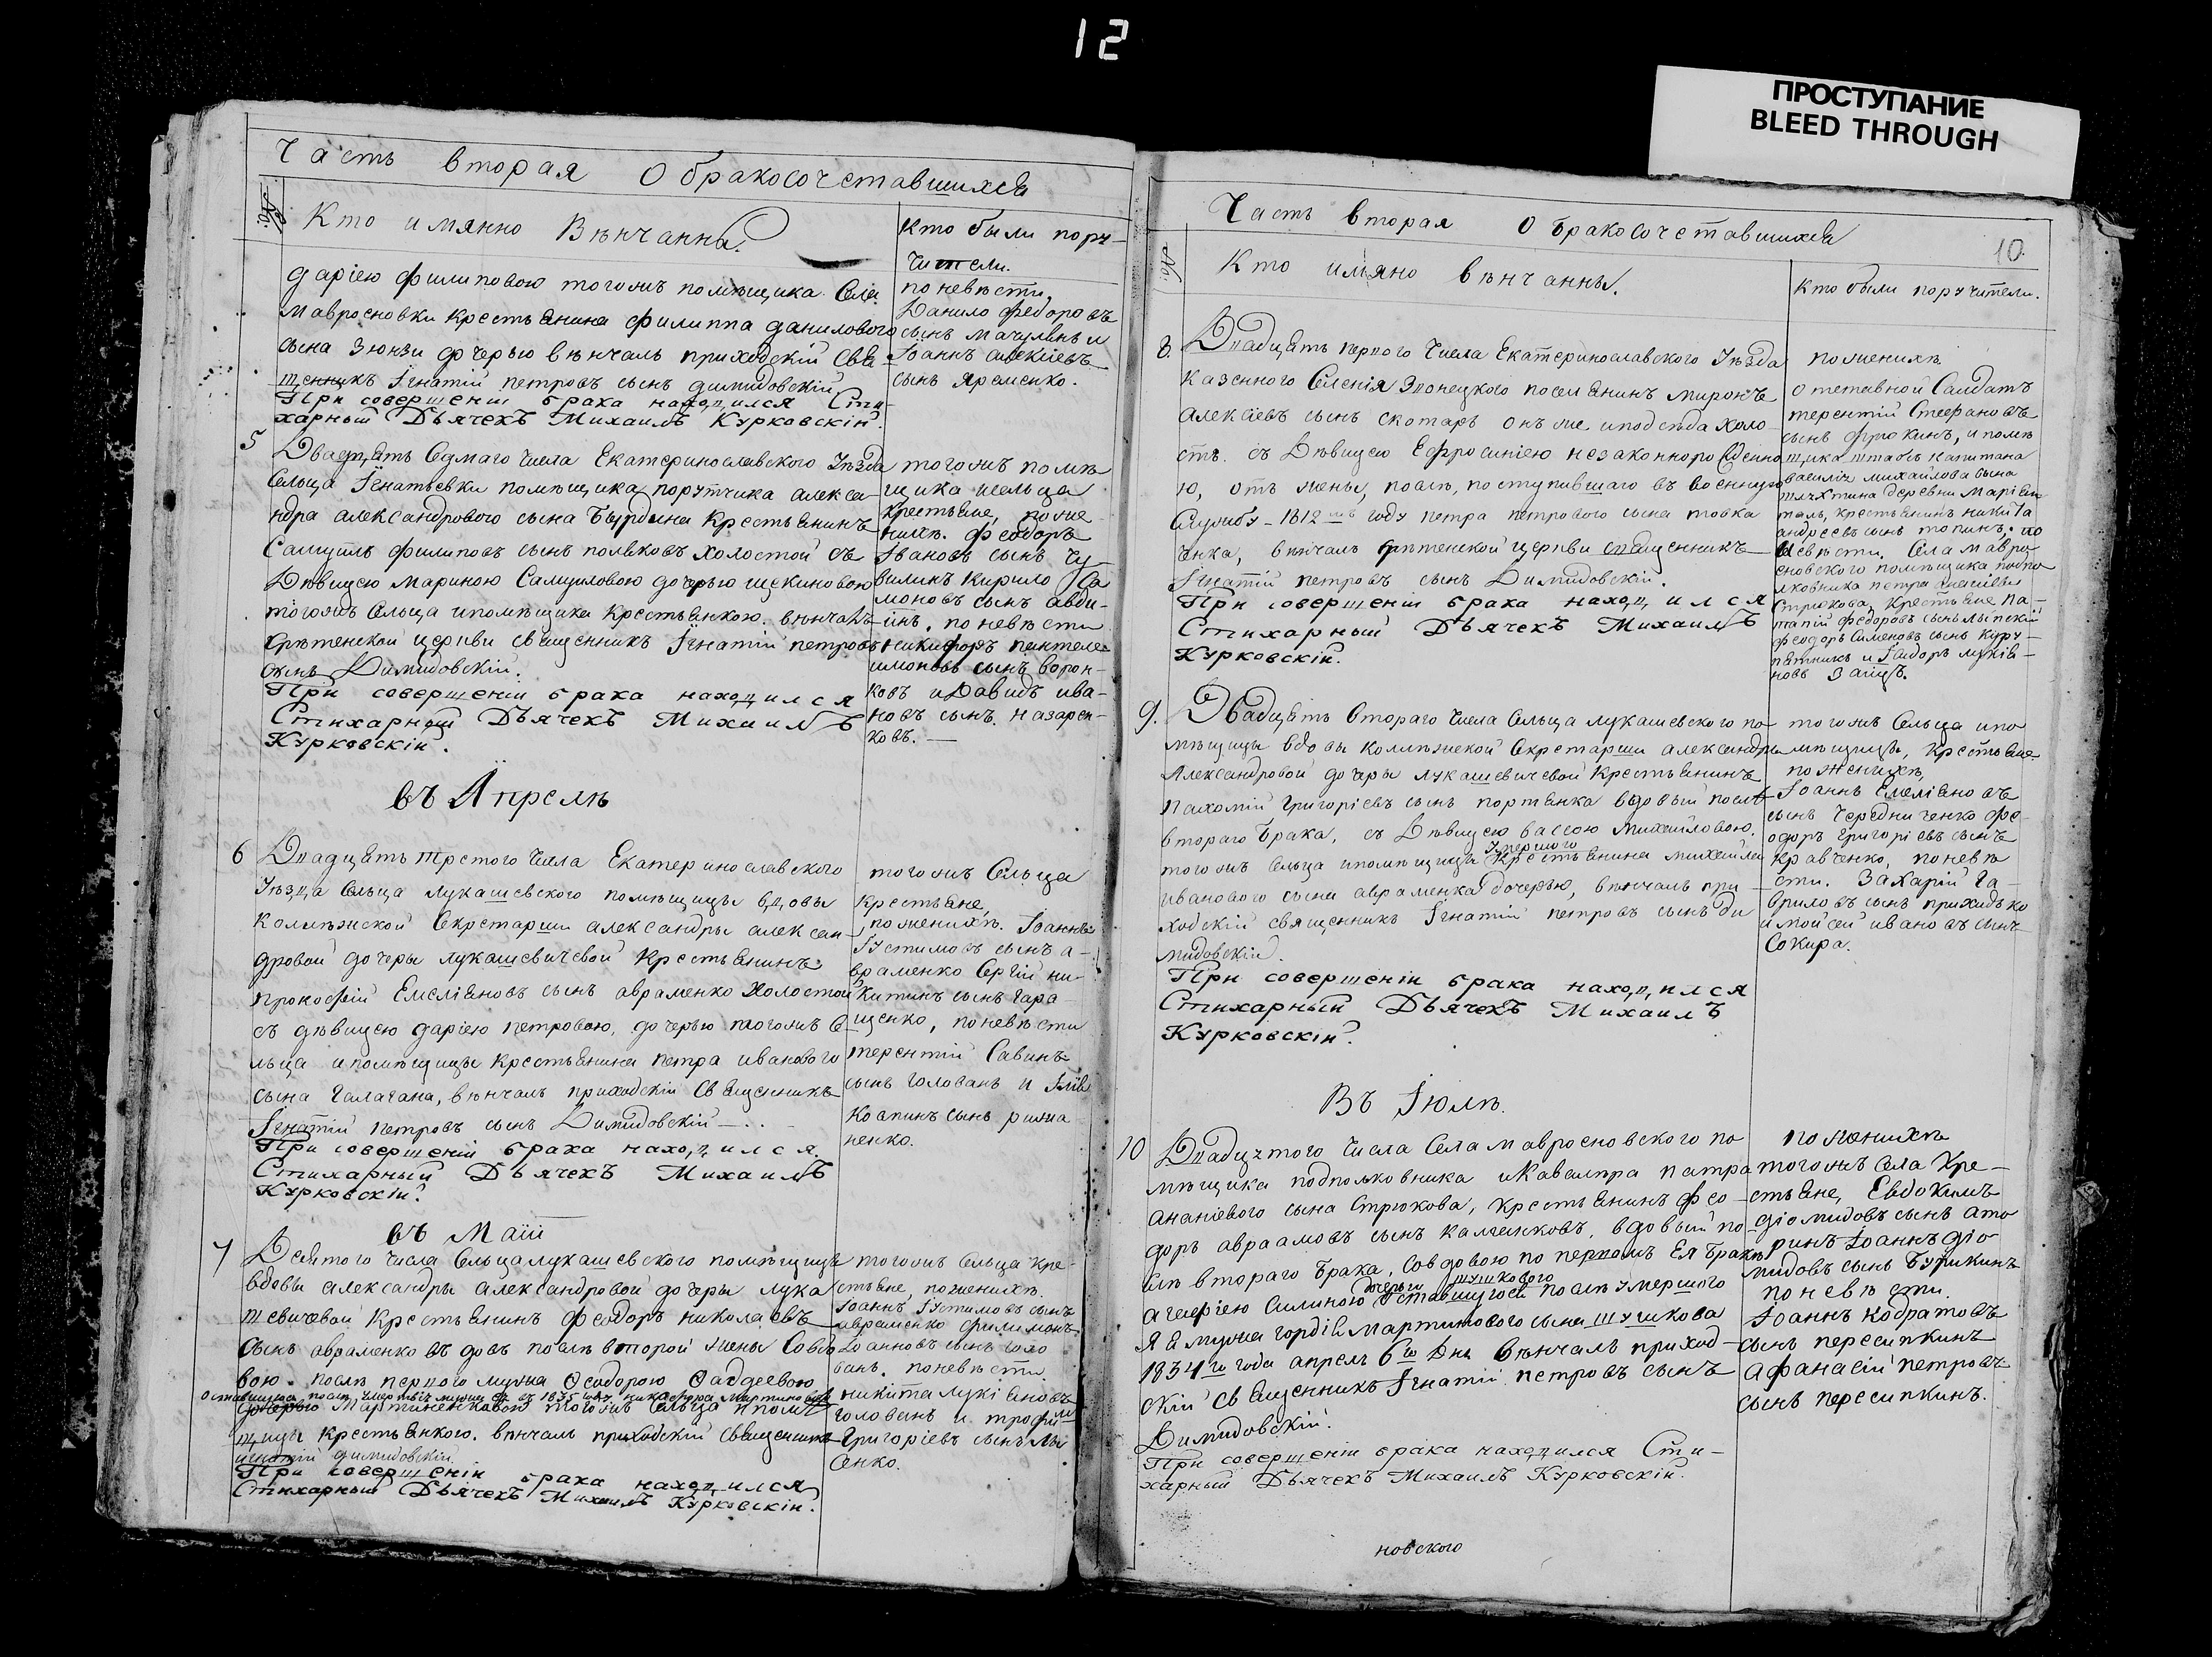 12
ПРОСТУПАНИЕ
BLEED THROUGH
Часть вторая О бракосочетавшихся
№
Кто имянно Вѣнчанны.
Кто были пору-
чители.
дарiею филиповою тогожъ помѣщика Села
Мавросновки крестьянина филиппа данилового
сына Зюнзи дочерью вѣнчалъ приходскiй Свя-
щенникъ Iгнатiй петровъ сынъ димидовскiй
При совершенiи брака находился Сти-
харный Дьячекъ Михаилъ Курковскiй.
по невѣсти,
Данило федоровъ
сынъ
и
Iоаннъ алексiевъ
сынъ яременко.
5
Двадцять Седмаго Числа Екатеринославского Уѣзда
Сельца Iгнатьевки помѣщика порутчика алекса-
ндра александрового сына Бурдина Крестьянинъ
Самуилъ филиповъ сынъ поляковъ холостой съ
Дѣвицею Мариною Самуиловою дочерью щекиновою
тогожъ Сельца ипомѣщика Крестьянкою. вѣнчалъ
срѣтенской церкви священникъ Iгнатiй петровъ
сынъ Димидовскiй.
При совершенiи брака находился
Стихарный Дьячекъ Михаилъ
Курковскiй.
тогожъ помѣ
щика исельца
крестьяне, по же
нихѣ. феодоръ
Iвановъ сынъ Чу
виликъ Кирило Па
моновъ сынъ авди-
инъ. по невѣсти
никифоръ пантеле
имоновъ сынъ ворон-
ковъ иДавидъ ива-
новъ сынъ. назарен-
ковъ.—
въ Апрелѣ
6
Двадцять третого Числа Екатеринославского
Уѣзда Сельца лукашевского помѣщицы вдовы
Колѣжской Секретарши александры алексан-
дровой дочеры лукашевичевой крестьянинъ
прокофiй Емелiяновъ сынъ авраменко Холостой
съ дѣвицею дарiею петровою, дочерью тогожъ се-
льца ипомѣщицы крестьянина петра иванового
сына Галагана, вѣнчалъ приходскiй Священникъ
Iгнатiй петровъ сынъ Димидовскiй—
При совершенiи брака находился
Стихарный Дьячекъ Михаилъ
Курковскiй.
тогожъ Сельца
крестьяне,
по женихѣ. Iоаннъ
Iустимовъ сынъ а-
враменко Сергiй ни-
китинъ сынъ Гара-
щенко, по невѣсти
терентiй Савинъ
сынъ Голованъ и Iлiя
Козминъ сынъ
ненко.
въ Маiи
7
Десятого Числа Сельца лукашевского помѣщицы
вдовы александры александровой дочеры лука
шевичевой крестьянинъ феодоръ николаевъ
сынъ авраменко вдовъ послѣ второй жены Совдо
вою. послѣ первого мужа Феодорою Фаддеевою
оставшеюся послѣ
дочерью Мартиненковою тогожъ Сельца ипомѣ
щицы крестьянкою. вѣнчалъ приходскiй Священникъ
игнатiй димидовскiй
При совершенiи брака находился
Стихарный Дьячекъ Михаилъ Курковскiй.
тогожъ Сельца кре-
стьяне, по женихѣ.
Iоаннъ Iустимовъ сынъ
авраменко филимонъ
Iоанновъ сынъ голо
ванъ. по невѣсти.
никита лукiяновъ
голованъ и трофим
Григорiевъ сынъ Лы
сенко.
Часть вторая О Бракосочетавшихся
10.
№
Кто имяно вѣнчанны.
Кто были поручители.
8.
Двадцять первого Числа Екатеринославского Уѣзда
казенного Селенiя Звонецкого поселянинъ миронъ
алексiевъ сынъ скотаръ онъ же
холо-
стъ. съ Дѣвицею Ефросинiею незаконнорожденно
ю, отъ жены, послѣ, поступившаго въ военную
Службу - 1812мъ году петра петрового сына товка
ченка, вѣнчалъ срѣтенской церкви священникъ
Iгнатiй петровъ сынъ Димидовскiй.
При совершенiи брака находился
Стихарный Дьячекъ Михаилъ
Курковскiй.
по женихѣ.
отставной Салдатъ
терентiй Стефановъ
сынъ
и помѣ
щика штабсъ капитана
василiя михайлова сына
деревни Марiян
крестьянинъ никита
андреевъ сынъ топинъ, по
невѣсти. Села мавро
сновского помѣщика подпо
лковника петра ананiева
Стрюкова, крестьяне па-
тапiй федоровъ сынъ
феодоръ Сименовъ сынъ
и Iсидоръ лукiя-
новъ Заицъ.
9.
Двадцять второго Числа Сельца лукашевского по-
мѣщицы вдовы коллѣжской Секретарши александры
Александровой дочеры лукашевичевой крестьянинъ
Пахомiй григорiевъ сынъ портянка вдовый послѣ
второго Брака, съ Дѣвицею вассою Михайловою.
умершого
тогожъ Сельца ипомѣщицы крестьянина михайла
иванового сына авраменка дочерью, вѣнчалъ при-
ходскiй священникъ Iгнатiй петровъ сынъ ди
мидовскiй.
При совершенiи брака находился
Стихарный Дьячекъ Михаилъ
Курковскiй.
тогожъ Сельца ипо
мѣщицы, крестьяне
по женихѣ,
Iоаннъ Емелiяновъ
сынъ Чередниченко фе-
одоръ григорiевъ сынъ
кравченко, по невѣ
сти. Захарiй Га-
вриловъ сынъ приходько
и мойсей ивановъ сынъ
Сокира.
Въ Iюлѣ.
10
Числа Села Мавросновского по
мѣщика подполковника иКавалѣра петра
ананiевого сына Стрюкова, крестьянинъ фео-
доръ авраамовъ сынъ Калченковъ, вдовый по
слѣ второго Брака, Совдовою по первомъ Ея Бракѣ
дочерью шушкового
агафiею Силиною Оставшуюся послѣ умершого
Ея мужа гордiя Мартинового сына шушкова
1834го года апреля 6го Дня вѣнчалъ приход-
скiй священникъ Iгнатiй петровъ сынъ
Димидовскiй.
При совершенiи брака находился Сти-
харный Дьячекъ Михаилъ Курковскiй.
по женихѣ
тогожъ Села кре-
стьяне, Евдокимъ
дiомидовъ сынъ
Iоаннъ дiо
мидовъ сынъ Бурикинъ
по невѣсти.
Iоаннъ Кодратовъ
сынъ пересипкинъ
афанасiй петровъ
сынъ пересипкинъ.
новского